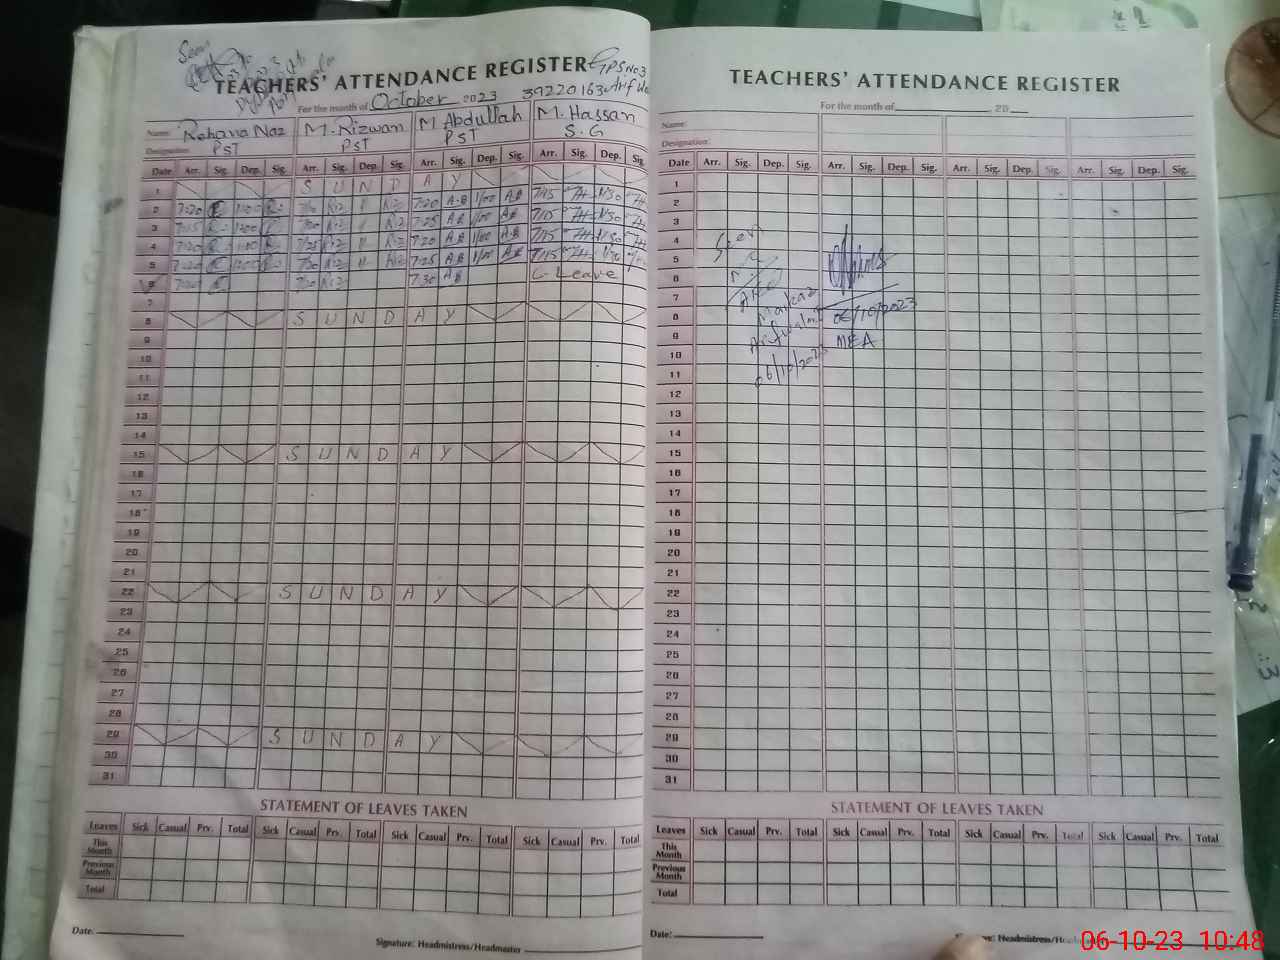 Seen
TEACHERS' ATTENDANCE REGISTER GPS No 3
For the month of October 2023 39220163 Arif
Name: Rehana Naz M. Rizwan M Abdullah M. Hassan
Designation: PST PST PST S.G
Date Arr. Sig. Dep. Sig. Arr. Sig. Dep. Sig. Arr. Sig. Dep. Sig. Arr. Sig. Dep. Sig.
1 S U N D A Y
2 7:20 1:00 Riz Riz 7:20 A.B 1/00 A.B 7/15 1/30
3 7:15 1:00 Riz Riz 7:25 A.B 1/00 A.B 7/15 1/30
4 7:20 1:00 7/25 Riz Riz 7:20 A.B 1/00 A.B 7/15 1/30
5 7:20 1:00 Riz Riz 7:25 A.B 1/00 A.B 7/15 1/30
6 7:20 Riz 7:30 A.B C-Leave
7
8 S U N D A Y
9
10
11
12
13
14
15 S U N D A Y
16
17
18
19
20
21
22 S U N D A Y
23
24
25
26
27
28
29 S U N D A Y
30
31
STATEMENT OF LEAVES TAKEN
Leaves Sick Casual Prv. Total Sick Casual Prv. Total Sick Casual Prv. Total Sick Casual Prv. Total
This Month
Previous Month
Total
Date:
Signature: Headmistress/Headmaster
TEACHERS' ATTENDANCE REGISTER
For the month of 20
Name:
Designation:
Date Arr. Sig. Dep. Sig. Arr. Sig. Dep. Sig. Arr. Sig. Dep. Sig. Arr. Sig. Dep. Sig.
1
2
3
4
5 Seen
6
7 AEO
8 Markaz 06/10/2023
9 Arifwala MEA
10 06/10/2023
11
12
13
14
15
16
17
18
19
20
21
22
23
24
25
26
27
28
29
30
31
STATEMENT OF LEAVES TAKEN
Leaves Sick Casual Prv. Total Sick Casual Prv. Total Sick Casual Prv. Total Sick Casual Prv. Total
This Month
Previous Month
Total
Date:
Signature: Headmistress/Headmaster
06-10-23 10:48